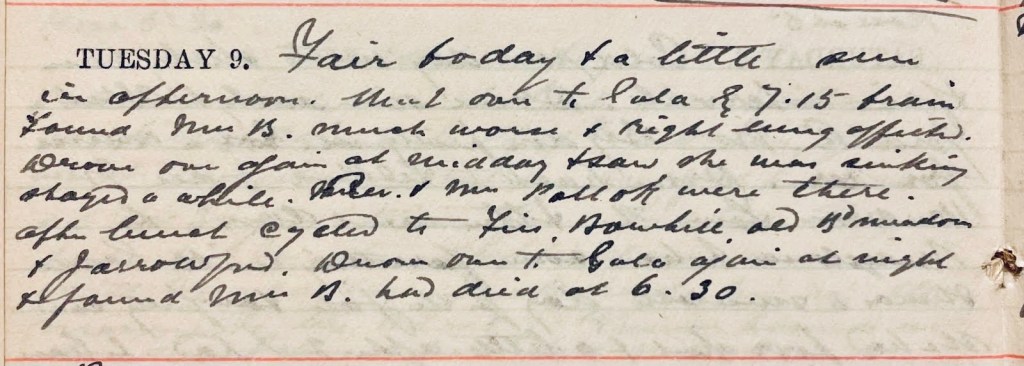 TUESDAY 9. Fair today & a little sun
in afternoon. out to Gala & 7.15 train
found Mrs B. much worse & right lung affected.
Drove over again at midday & saw she was sinking
stayed a while. & Mrs Pollok were there.
after lunch cycled to Firs, Bowhill, old Bd meadow
& Yarrowford. Drove over to Gala again at night
& found Mrs B. had died at 6.30.